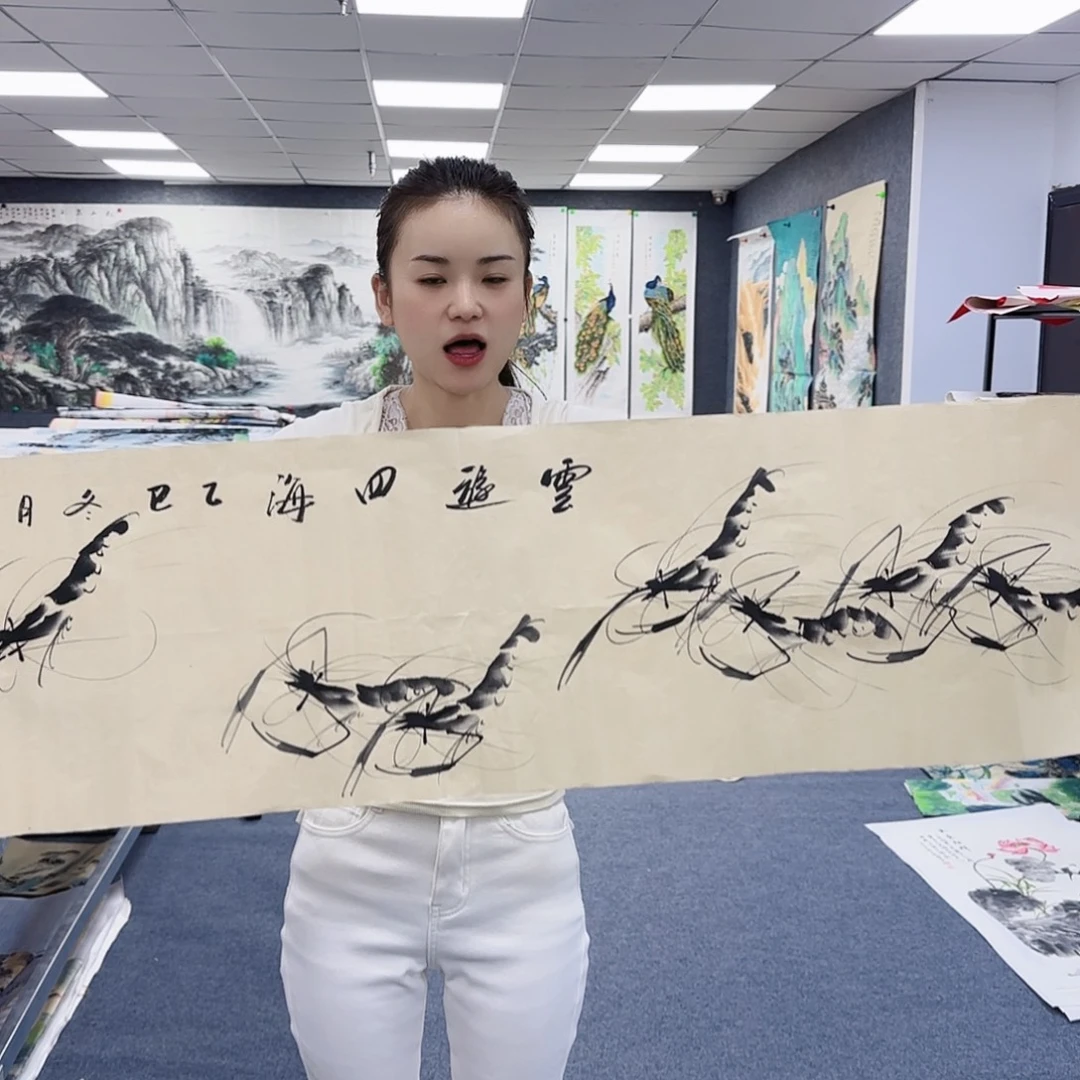 雲遊四海乙巳冬月